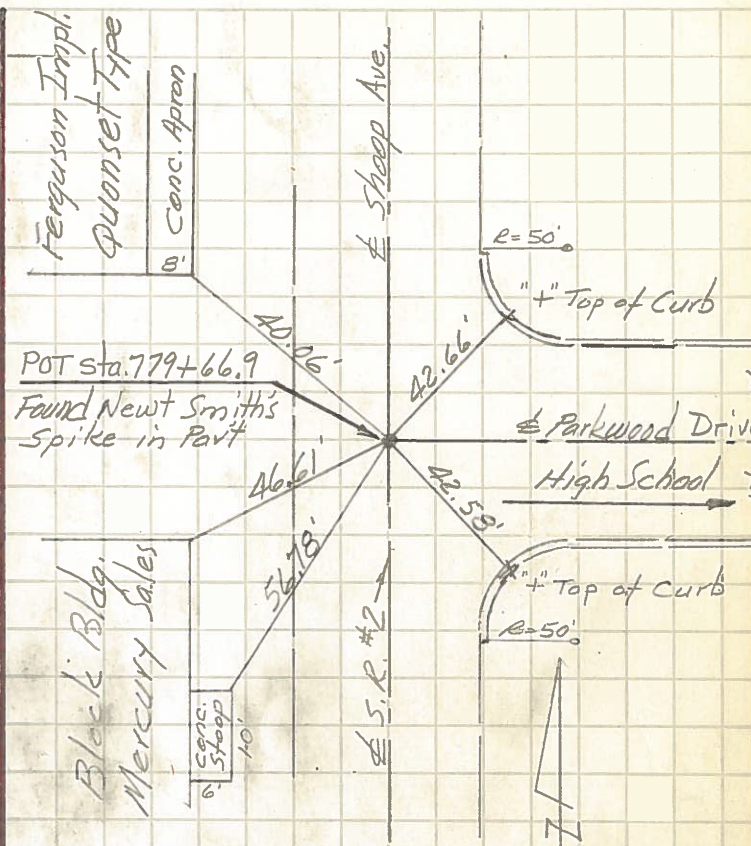 Ferguson Impl.
Quonset Type
Conc. Apron
8'
℄ Shoop Ave.
R=50'
"+" Top of Curb
40.06'
42.66'
POT Sta. 779+66.9
Found Newt Smith's
Spike in Pavt
℄ Parkwood Drive
High School
46.61'
42.58'
56.78'
"+" Top of Curb
R=50'
Block Bldg.
Mercury Sales
Conc.
Stoop
10'
6'
℄ S.R. #2
N